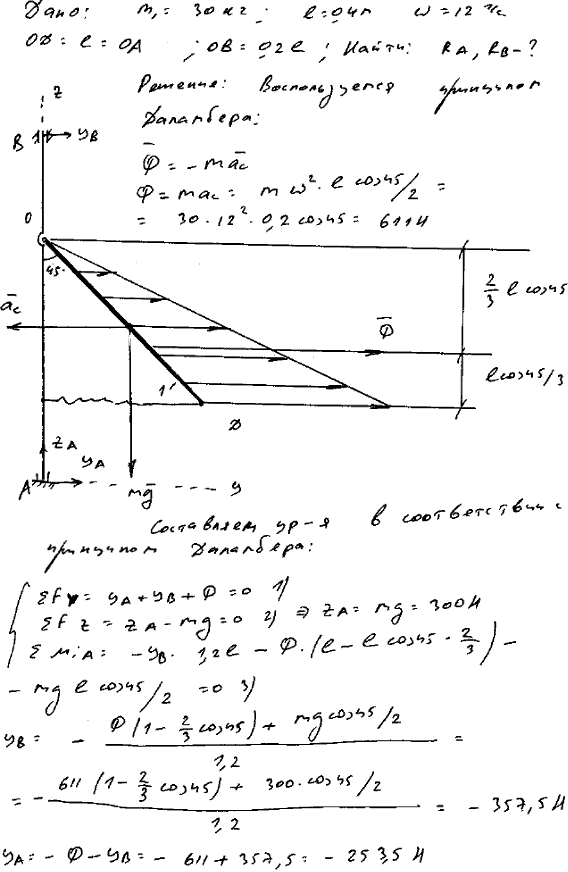 Дано: m₁ = 30 кг; l = 0,4 м ω = 12 1/с
OD = l = OA ; OB = 0,2 l ; Найти: RA, RB - ?
Решение: Воспользуемся принципом
Даламбера:
z
B
yB
Φ̄ = - m āc
Φ = mac = mω² · l cos45/2 =
= 30 · 12² · 0,2 cos45 = 611 Н
O
45°
2/3 l cos45
āc
Φ̄
l cos45/3
1'
D
zA
yA
A
mḡ
y
Составляем ур-я в соответствии с
принципом Даламбера:
ΣFy = yA + yB + Φ = 0 1)
ΣFz = zA - mg = 0 2) ⇒ zA = mg = 300 Н
ΣMiA: - yB · 1,2l - Φ · (l - l cos45 · 2/3) -
- mg l cos45/2 = 0 3)
yB = - (Φ(1 - 2/3 cos45) + mg cos45/2) / 1,2 =
= - (611 (1 - 2/3 cos45) + 300 · cos45/2) / 1,2 = - 357,5 Н
yA = - Φ - yB = - 611 + 357,5 = - 253,5 Н